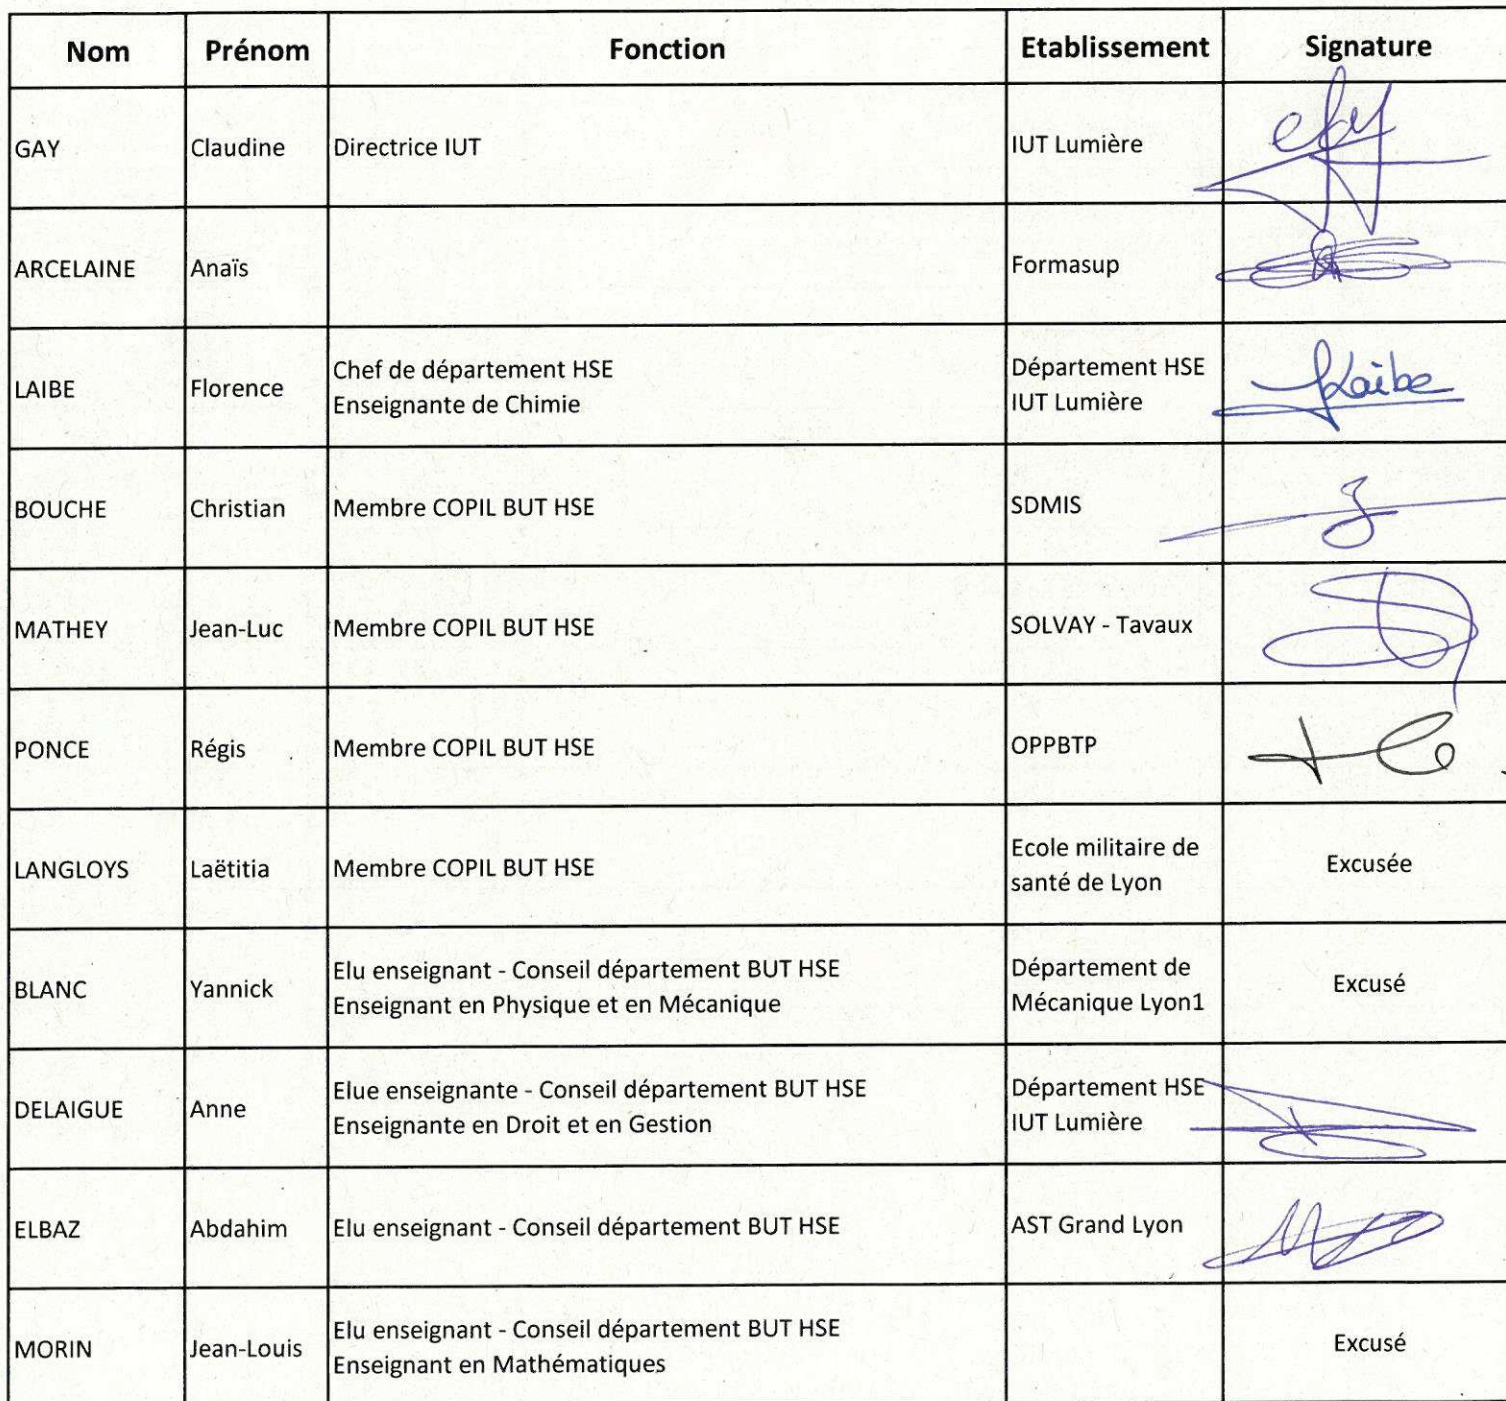 Nom Prénom Fonction Etablissement Signature
GAY Claudine Directrice IUT IUT Lumière
ARCELAINE Anaïs Formasup
LAIBE Florence Chef de département HSE
Enseignante de Chimie
Département HSE
IUT Lumière
Laibe
BOUCHE Christian Membre COPIL BUT HSE SDMIS
MATHEY Jean-Luc Membre COPIL BUT HSE SOLVAY - Tavaux
PONCE Régis Membre COPIL BUT HSE OPPBTP
LANGLOYS Laëtitia Membre COPIL BUT HSE
Ecole militaire de
santé de Lyon
Excusée
BLANC Yannick
Elu enseignant - Conseil département BUT HSE
Enseignant en Physique et en Mécanique
Département de
Mécanique Lyon1
Excusé
DELAIGUE Anne
Elue enseignante - Conseil département BUT HSE
Enseignante en Droit et en Gestion
Département HSE
IUT Lumière
ELBAZ Abdahim Elu enseignant - Conseil département BUT HSE AST Grand Lyon
MORIN Jean-Louis
Elu enseignant - Conseil département BUT HSE
Enseignant en Mathématiques
Excusé